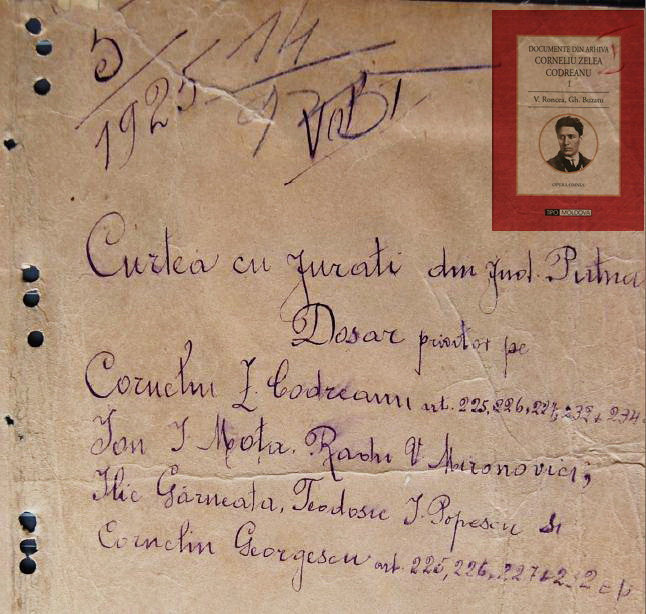 5/1925
14
Curtea cu Jurati din Jud. Putna
Dosar privitor pe
Corneliu Z. Codreanu art. 225, 226, 227, 232 + 234
Ion I Moța. Radu V Mironovici;
Ilie Gârneața, Teodosie I. Popescu și
Corneliu Georgescu art. 225, 226, 227 + 232 c p
DOCUMENTE DIN ARHIVA
CORNELIU ZELEA
CODREANU
I
V. Roncea, Gh. Buzatu
OPERA OMNIA
TIPO MOLDOVA